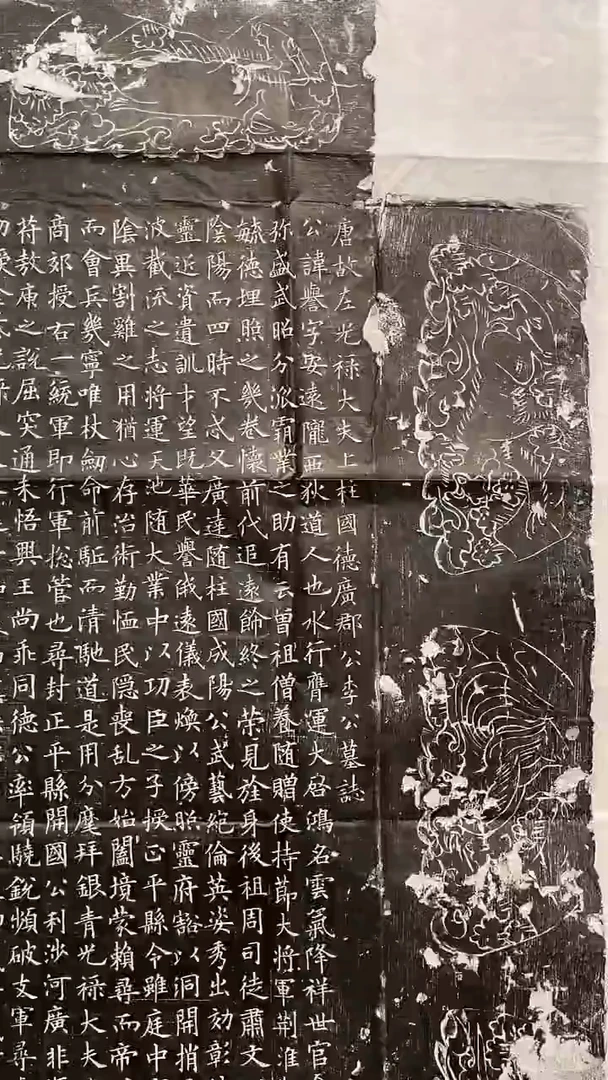 唐故左光禄大夫上柱國德廣郡公李公墓誌
公諱譽字安遠隴西狄道人也水行膺運大啓鴻名雲氣降祥世官
弥盛武昭分派霸業之助有云曽祖僧養随贈使持節大將軍荆淮
毓德埋照之幾卷懷前代追遠飾終之榮見旌身後祖周司徒肅文
陰陽而四時不忒父廣達随柱國成陽公武藝紀倫英姿秀出効彰
靈近資遺訓才望既華民譽戚遠儀表煥以傍照靈府豁以洞開捎
波截流之志將運天池随大業中以功臣之子授正平縣令雖庭中
陰異割雞之用猶心存治術勤恤民隠喪乱方始闔境蒙賴尋而帝
而會兵幾寧唯杖劒命前駈而清馳道是用分麾拜銀青光禄大夫
商郊授右一統軍即行軍捴管也尋封正平縣開國公利沙河廣非
苻敖庾之説屈突通未悟興王尚乖同德公率領驍銳頻破支軍尋